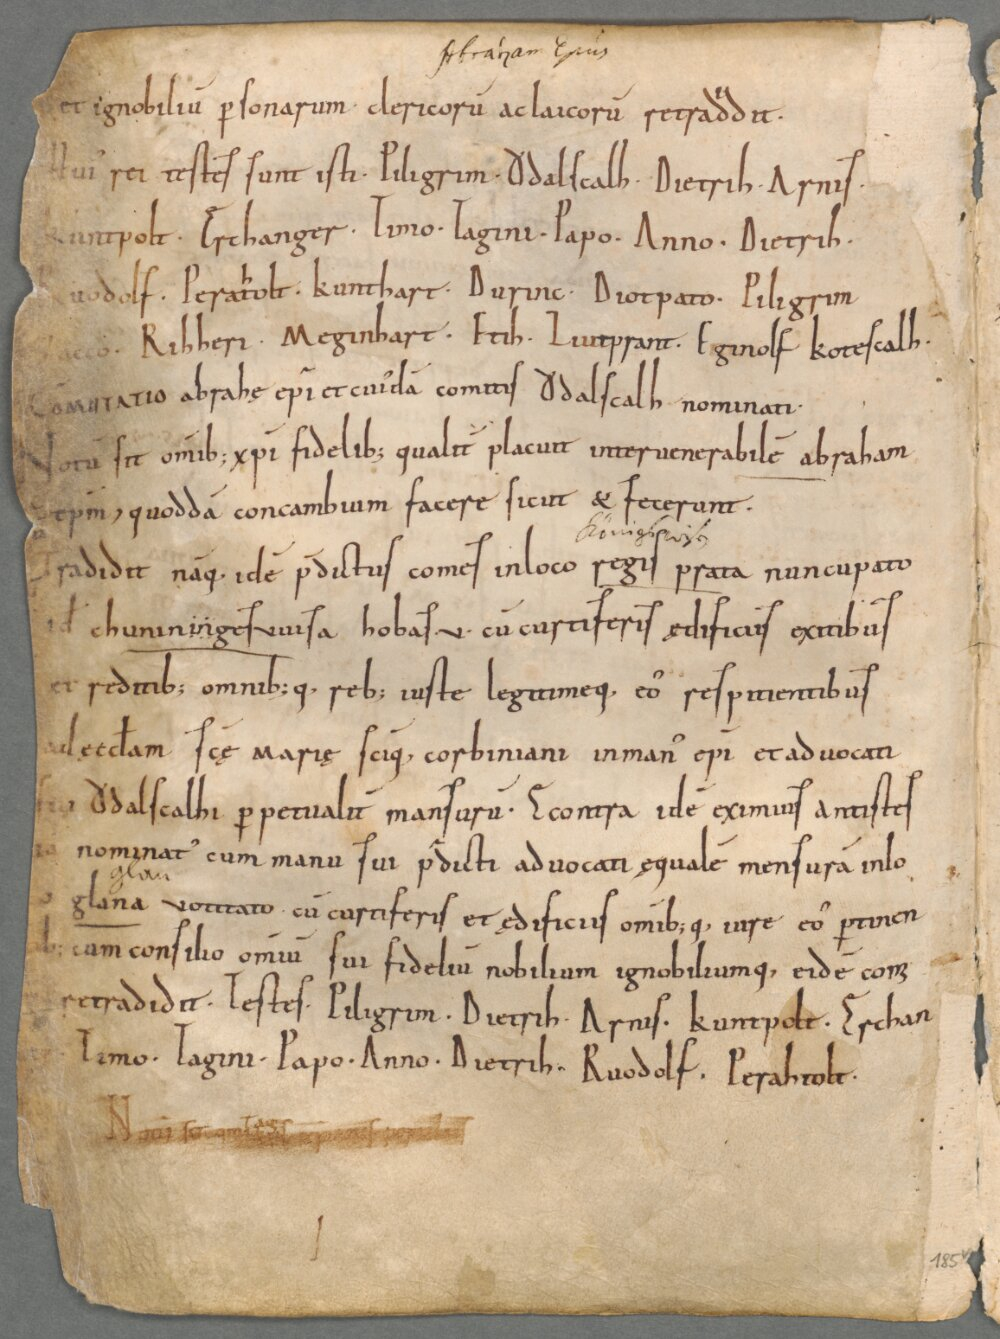 Abraham Epus
et ignobiliū p̱sonarum clericorū ac laicorū retraddit.
Hui᾽ rei testes sunt isti· Piligrim· Ǒdalscalh· Dietrih· Arnis·
kuntpolt· Erchanger· Timo· Tagini· Papo· Anno· Dietrih·
Ruodolf· Perahtolt· kunthart· Durinc· Diotpato· Piligrim
Ribheri· Meginhart· Etih· Liutprant· Eginolf kotescalh·
COMMUTATIO abrahę ep̄i et cui᾽dā comitis Ǒdalscalh nominati·
Notū sit om̄ib; xp̄i fidelib; qualit̄ placuit inter venerabilē abraham
ep̄m, quoddā concambium facere sicut & fecerunt·
Königswiß
Tradidit nāq, idē p̄dictus comes in loco regis prata nuncupato
id chuningesvuisa hobas v· cū curtiferis ędificiis exitibus
et reditib; omnib;q, reb; iuste legitimeq, eo᾽ respitientibus
ad ęccłam scę Marię sciq, corbiniani in man᾽ ep̄i et advocati
sui Ǒdalscalhi p̱petualit̄ mansurū· Econtra idē eximius antistes
nominat᾽ cum manu sui p̄dicti advocati ęqualē mensurā in lo
glan
glana votitato cū curtiferis et ędificiis om̄ib;q, iure eo᾽ p̱tinen
b; cum consilio om̄iū sui fideliū nobilium ignobiliumq, eidē com
retradidit· Testes· Piligrim· Dietrih· Arnis· kuntpolt· Erchan
Timo· Tagini· Papo· Anno· Dietrih· Ruodolf· Perahtolt·
185v